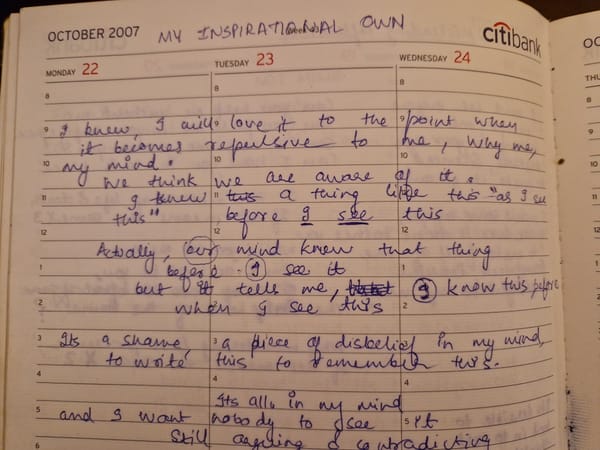 OCTOBER 2007 MY INSPIRATIONAL OWN
citibank
MONDAY 22 TUESDAY 23 WEDNESDAY 24
I knew, I will love it to the point when
it becomes repulsive to me, why me,
my mind.
We think we are aware of it.
I knew this a thing like this "as I see
this" before I see this
Actually, our mind knew that thing
before I see it
but it tells me, I knew this before
when I see this
Its a shame, a piece of disbelief in my mind,
to write this to remember this.
Its all in my mind
and I want nobody to see it
Still arguing & contradicting